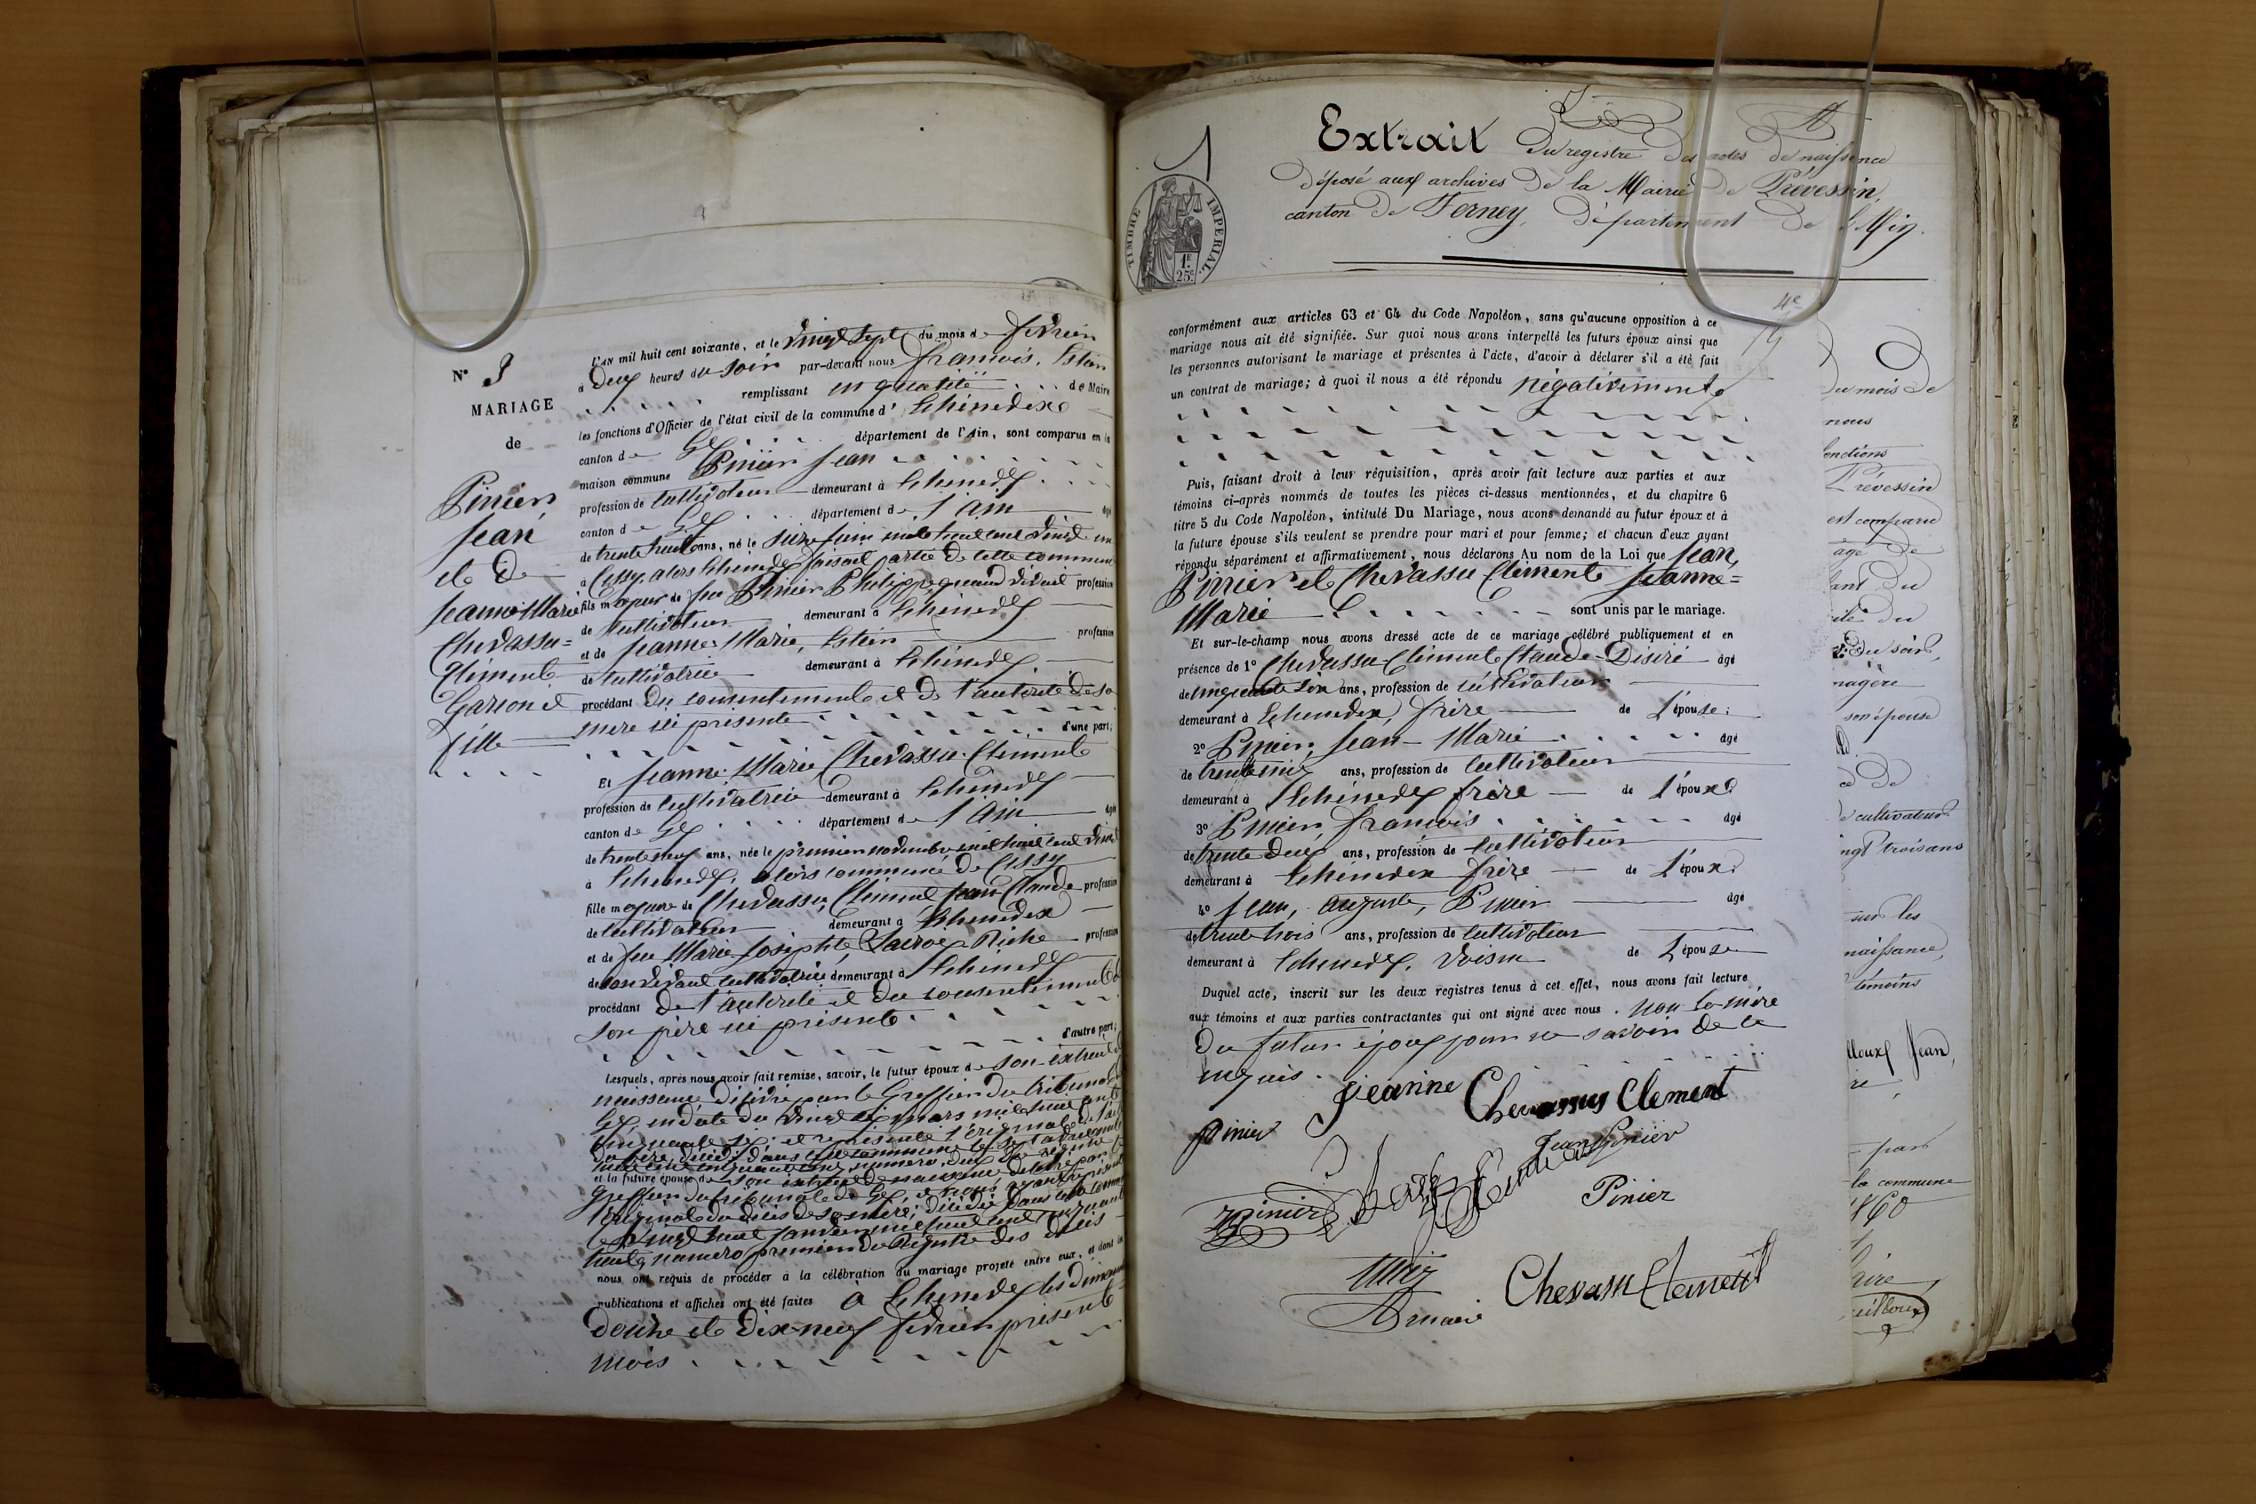 N° 3
MARIAGE
de
Pinier
Jean
et De
Jeanne Marie
Chevassu=
Clément
Garçon et
fille
L'AN mil huit cent soixante, et le vingt sept du mois de février
à deux heures du soir par-devant nous françois,
remplissant en qualité de Maire
les fonctions d'Officier de l'état civil de la commune d' Echenevex
canton de Gex département de l'Ain, sont comparus en la
maison commune Pinier Jean
profession de cultivateur demeurant à Echenevex
canton de Gex département de l'Ain âgé
de trente huit ans, né le seize juin mil huit cent vingt un
à Cessy, alors Echenevex faisant partie de cette commune
fils majeur de feu Pinier Philippe, quand vivait profession
de cultivateur demeurant à Echenevex
et de Jeanne Marie, profession
de cultivatrice demeurant à Echenevex
procédant du consentement et de l'autorité de sa
mère ici présente d'une part;
Et Jeanne Marie Chevassu Clément
profession de cultivatrice demeurant à Echenevex
canton de Gex département de l'Ain âgée
de trente neuf ans, née le premier novembre mil huit cent vingt
à Echenevex, alors commune de Cessy
fille majeure de Chevassu, Clément Jean Claude profession
de cultivateur demeurant à Echenevex
et de feu Marie Josephte, Riche profession
de son vivant cultivatrice demeurant à Echenevex
procédant de l'autorité et du consentement de
son père ici présent d'autre part;
Lesquels, après nous avoir fait remise, savoir, le futur époux de son extrait de
naissance délivré par le Greffier du tribunal de
Gex, en date du vingt six mars mil huit cent
cinquante six; et représenté l'original de l'acte
du père, décédé dans cette commune
et la future épouse de son extrait de naissance délivré par le
Greffier du tribunal de Gex, et nous ayant représenté
l'original du décès de sa mère; décédée dans cette commune
le vingt huit janvier mil huit cent cinquante
huit, numéro premier du Registre des décès
nous ont requis de procéder à la célébration du mariage projeté entre eux, et dont les
publications et affiches ont été faites à Echenevex les dimanches
douze et dix-neuf février présent
mois
Extrait Du registre des actes de naissance
déposé aux archives de la Mairie de Prévessin,
canton de Ferney, département de l'Ain.
TIMBRE IMPERIAL.
1F.
25c.
4e
conformément aux articles 63 et 64 du Code Napoléon, sans qu'aucune opposition à ce
mariage nous ait été signifiée. Sur quoi nous avons interpellé les futurs époux ainsi que
les personnes autorisant le mariage et présentes à l'acte, d'avoir à déclarer s'il a été fait
un contrat de mariage; à quoi il nous a été répondu négativement
Puis, faisant droit à leur réquisition, après avoir fait lecture aux parties et aux
témoins ci-après nommés de toutes les pièces ci-dessus mentionnées, et du chapitre 6
titre 5 du Code Napoléon, intitulé Du Mariage, nous avons demandé au futur époux et à
la future épouse s'ils veulent se prendre pour mari et pour femme; et chacun d'eux ayant
répondu séparément et affirmativement, nous déclarons Au nom de la Loi que Jean,
Pinier et Chevassu Clément Jeanne=
Marie sont unis par le mariage.
Et sur-le-champ nous avons dressé acte de ce mariage célébré publiquement et en
présence de 1° Chevassu-Clément Claude-Désiré âgé
de cinquante six ans, profession de cultivateur
demeurant à Echenevex, frère de L'épouse;
2° Pinier, Jean-Marie âgé
de ans, profession de cultivateur
demeurant à Echenevex frère de L'époux
3° Pinier, François âgé
de trente deux ans, profession de cultivateur
demeurant à Echenevex frère de L'époux
4° Jean, Auguste, Pinier âgé
de trente trois ans, profession de cultivateur
demeurant à Echenevex, voisin de L'épouse
Duquel acte, inscrit sur les deux registres tenus à cet effet, nous avons fait lecture
aux témoins et aux parties contractantes qui ont signé avec nous. non la mère
du futur époux pour ne savoir de ce
requis.
Jeanne Chevassus Clement
Pinier
Jean Pinier
Pinier
Pinier
Maire
Chevassu Clement
du mois de
nous
Prevessin
est comparu
âgé de
du
du soir,
son épouse
de
cultivateur
vingt trois ans
sur les
naissance,
témoins
Jean,
part
la commune
1860